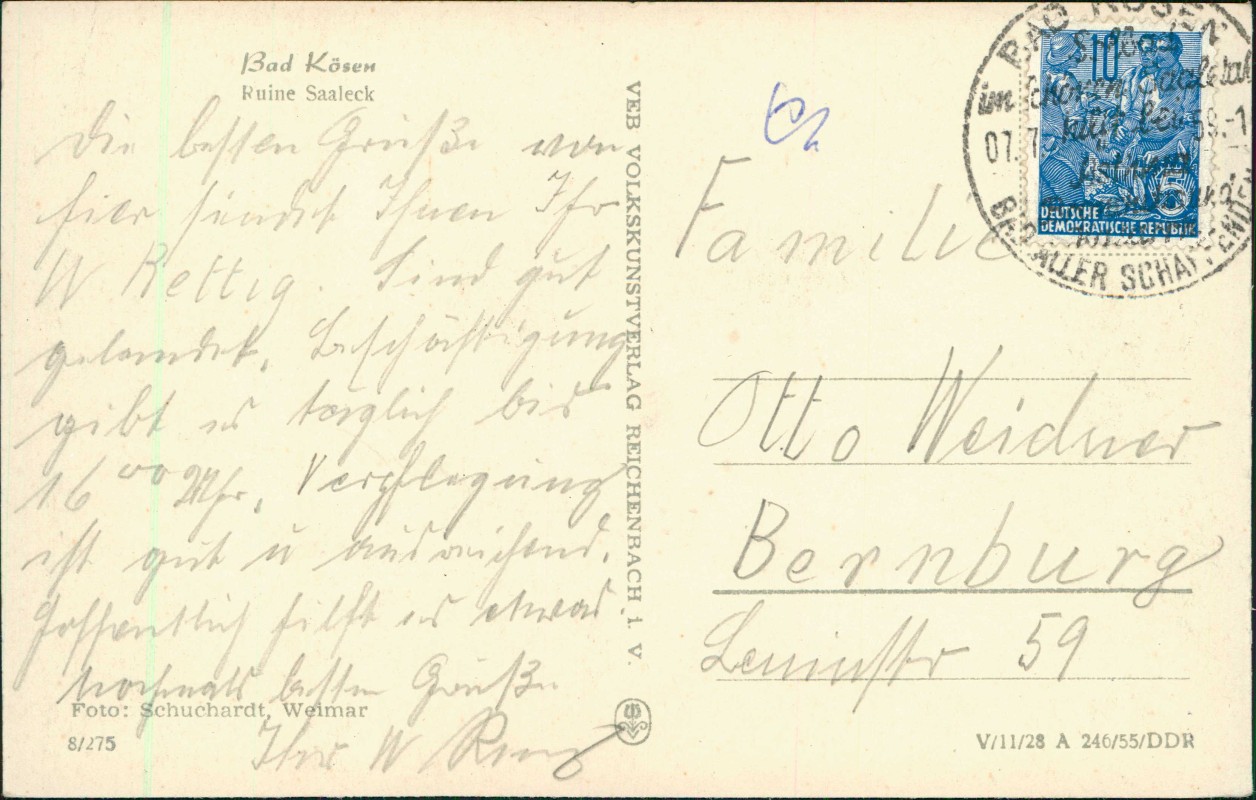 Bad Kösen
Ruine Saaleck
Die besten Grüße von
hier sendet Ihnen Ihr
W Rettig. Sind gut
gelandet, Beschäftigung
gibt es täglich bis
16 00 Uhr, Verpflegung
ist gut u ausreichend.
Hoffentlich hilft es etwas
Nochmals besten Grüße
Ihr W
Foto: Schuchardt, Weimar
8/275
VEB VOLKSKUNSTVERLAG REICHENBACH i. V.
BAD KÖSEN
im Saaletal
07.7. 59.-1
BAD ALLER SCHAFFENDEN
10
5
DEUTSCHE
DEMOKRATISCHE REPUBLIK
Familie
Otto Weidner
Bernburg
Leninstr 59
V/11/28 A 246/55/DDR